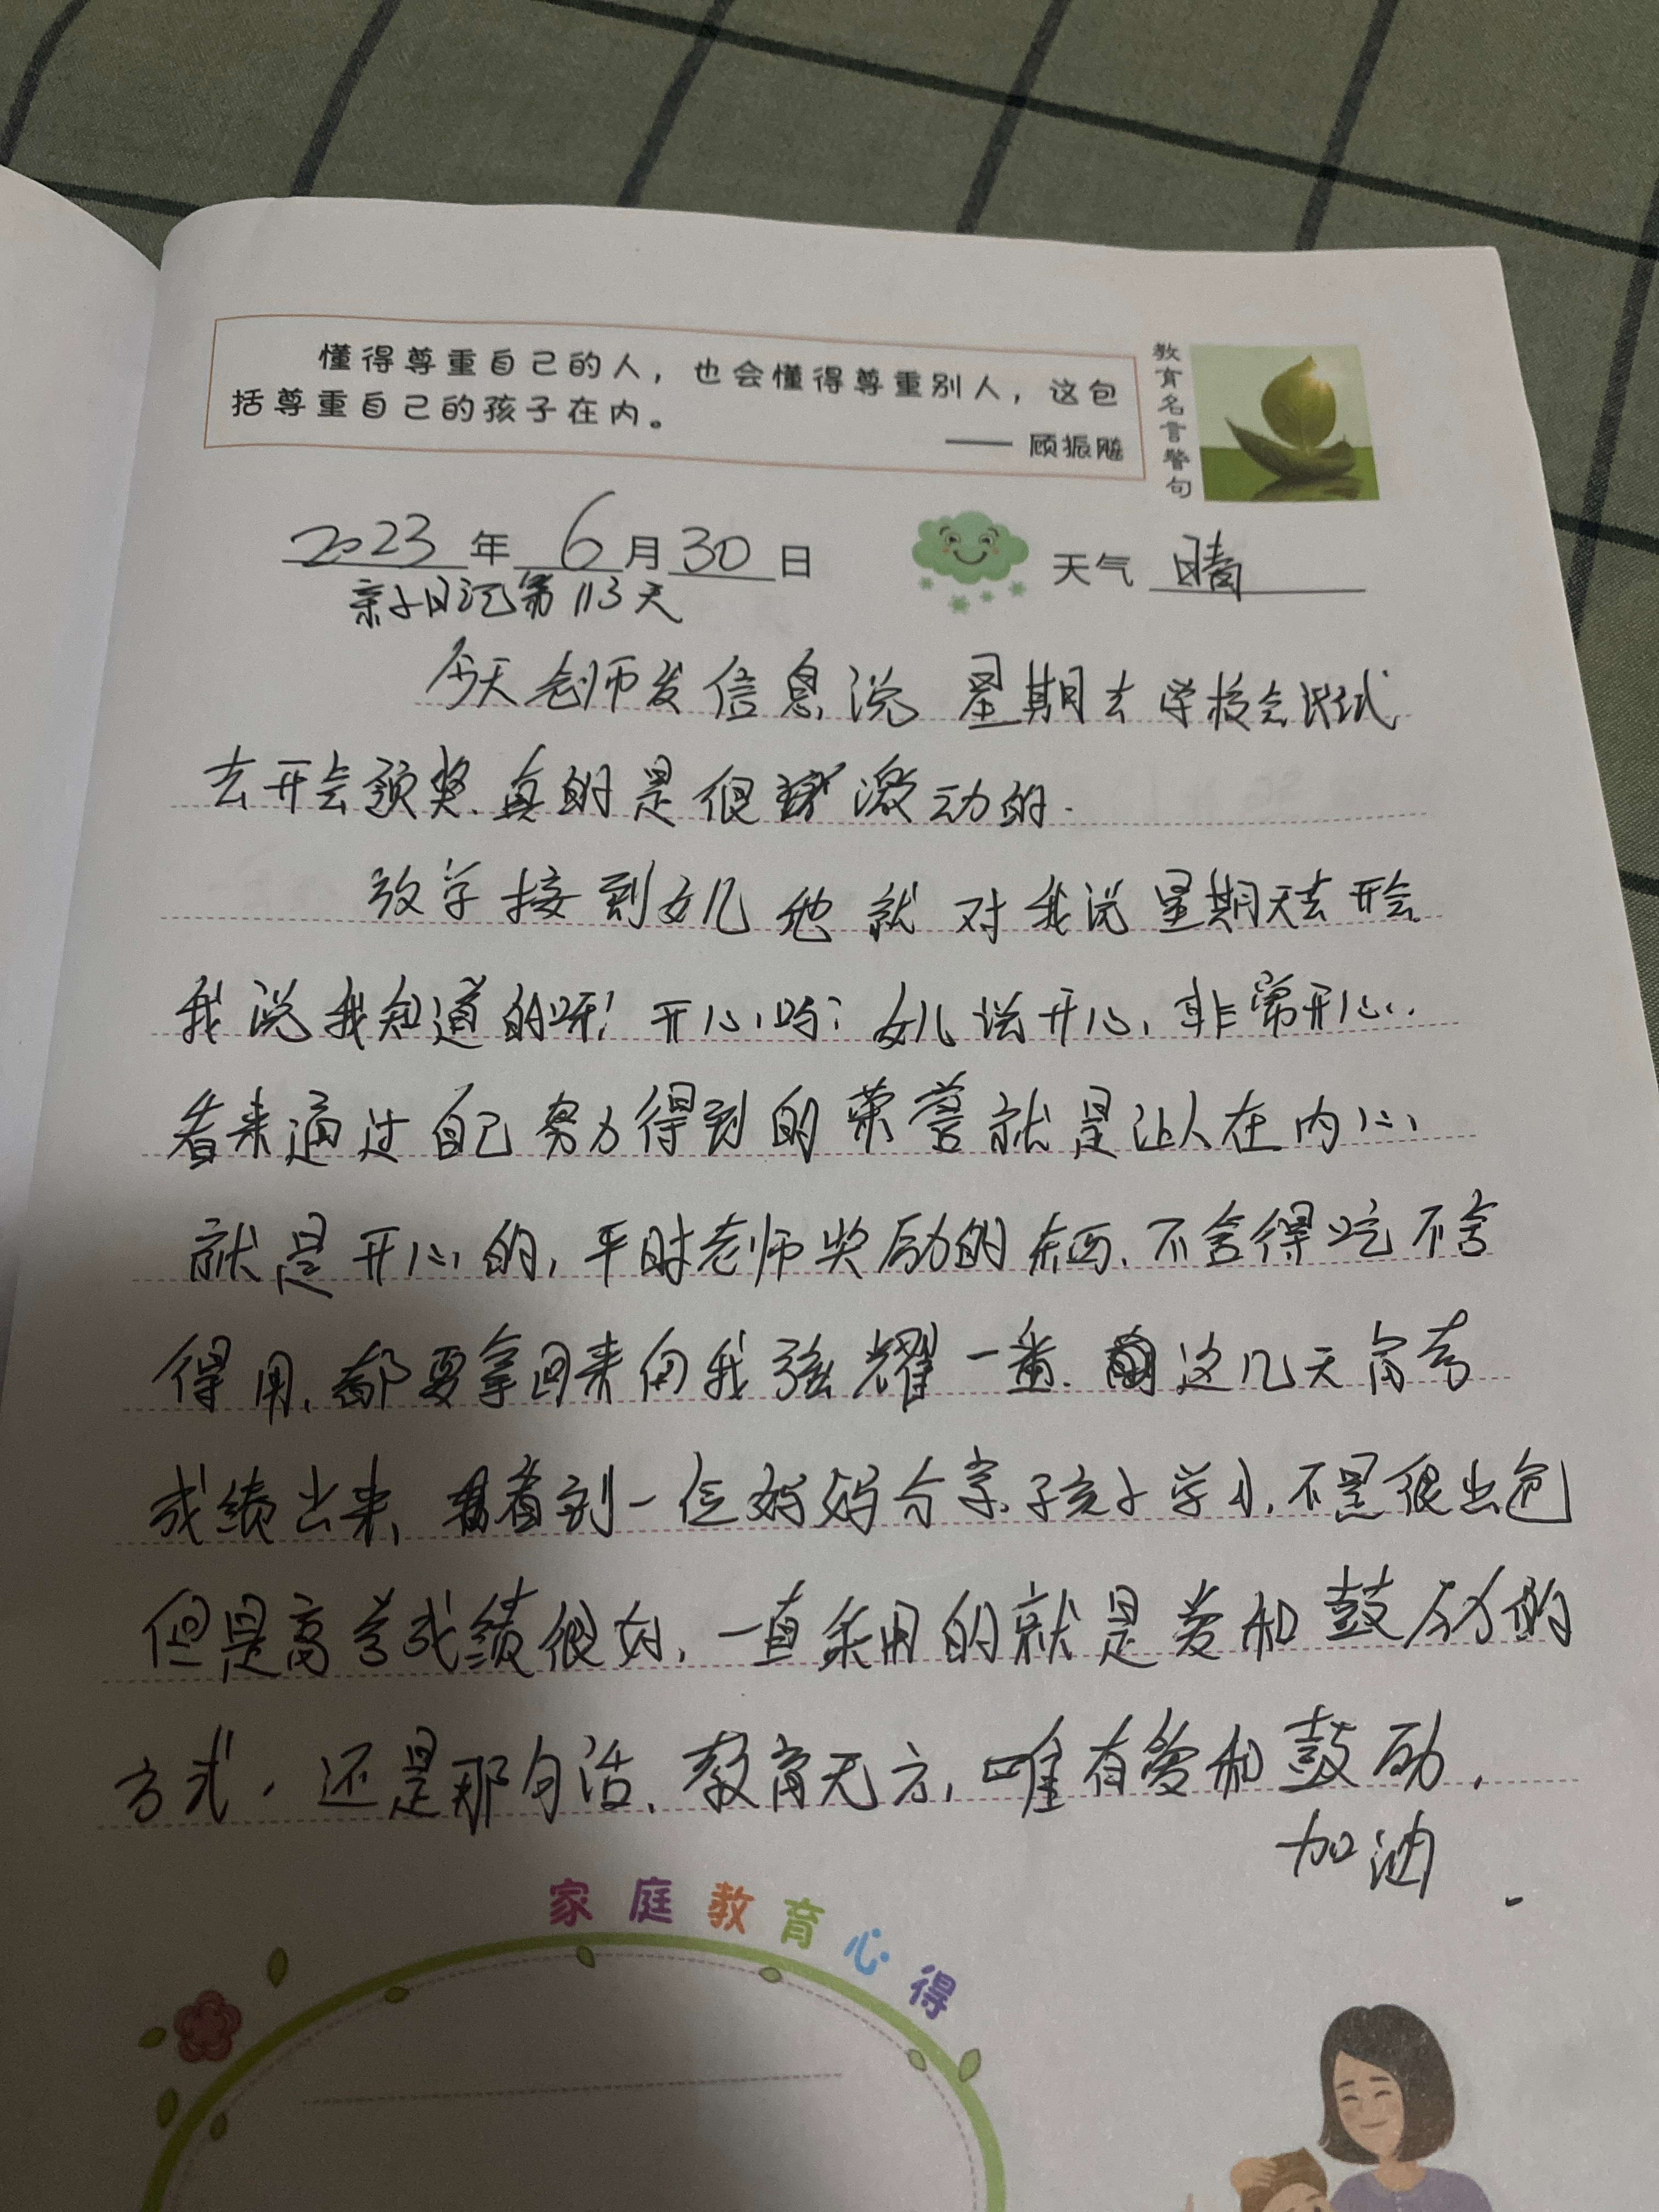 懂得尊重自己的人，也会懂得尊重别人，这包
括尊重自己的孩子在内。
—— 顾振飚
教育名言警句
2023年 6月30日 天气 晴
亲子日记第113天
今天老师发信息说 星期去学校会试
去开会颁奖.真的是很激动的.
放学接到女儿 他就对我说星期天去开会
我说我知道的呀! 开心吗? 女儿说开心, 非常开心.
看来通过自己努力得到的荣誉就是让人在内心
就是开心的, 平时老师奖励的东西.不舍得吃不舍
得用.都要拿回来向我炫耀一番.这几天高考
成绩出来, 看到一位妈妈分享.子孩子学习,不是很出色
但是高考成绩很好, 一直采用的就是爱和鼓励的
方式. 还是那句话.教育无方, 唯有爱和鼓励.
加油
家庭教育心得